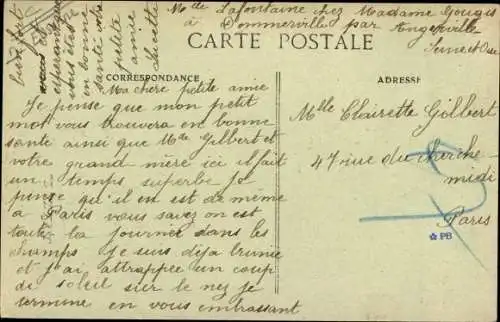 Mde Lafontaine chez Madame Gougis
à Dommerville par Angerville
Seine et Oise
CARTE POSTALE
CORRESPONDANCE
ADRESSE
Ma chère petite amie
Je pense que mon petit
mot vous trouvera en bonne
santé ainsi que Mde Gilbert et
votre grand mère ici il fait
un temps superbe je
pense qu'il en est de même
à Paris vous savez on est
toute la journée dans les
champs je suis déja brunie
et j'ai attrappée un coup
de soleil sur le nez je
termine en vous embrassant
bien fort
espérant que
vous êtes
en bonne
santé votre
petite
amie
Lucette
Mlle Clairette Gilbert
47 rue du cherche
midi
Paris
PB